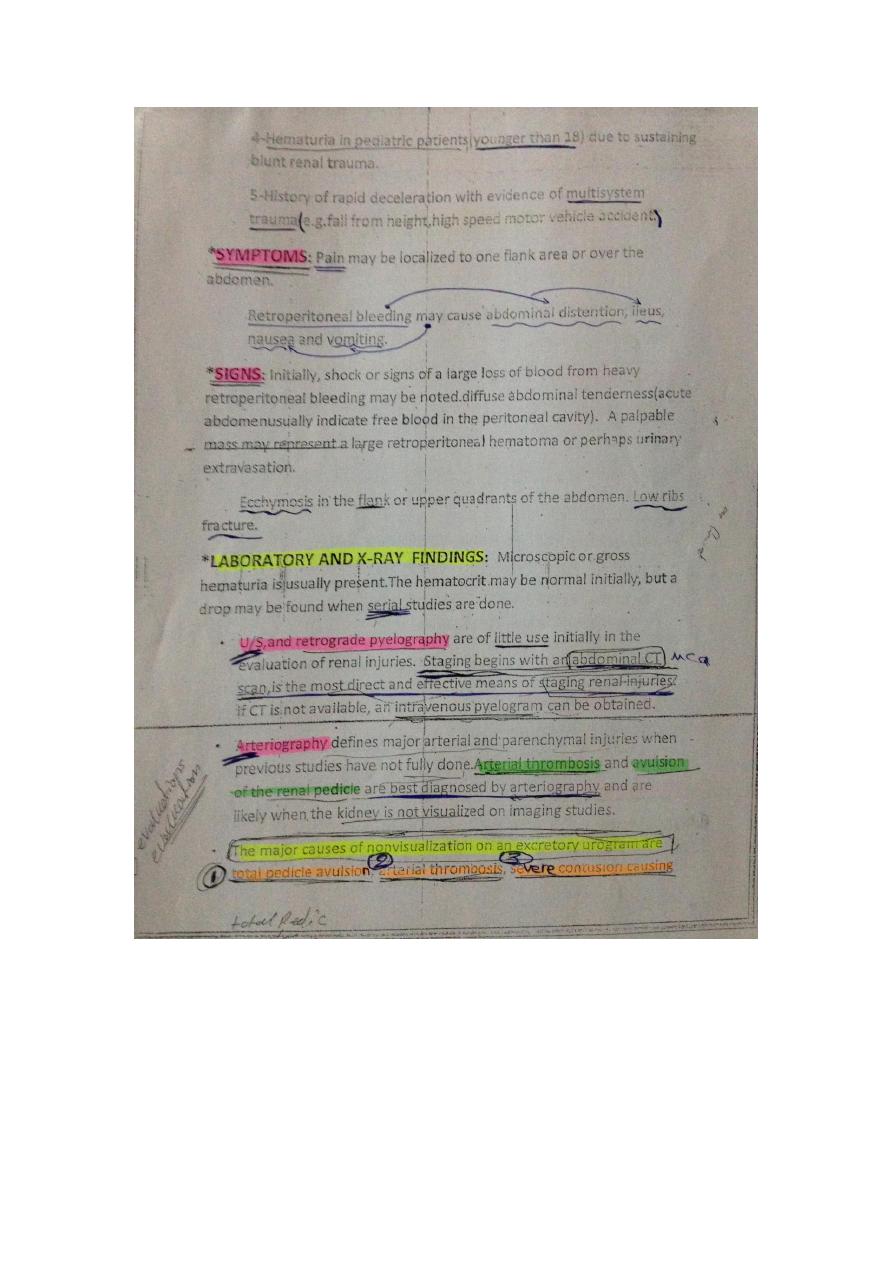 4-Hematuria in pediatric patients(younger than 18) due to sustaining
blunt renal trauma.
5-History of rapid deceleration with evidence of multisystem
trauma(e.g.fall from height,high speed motor vehicle accident)
*SYMPTOMS: Pain may be localized to one flank area or over the
abdomen.
Retroperitoneal bleeding may cause abdominal distention, ileus,
nausea and vomiting.
*SIGNS: Initially, shock or signs of a large loss of blood from heavy
retroperitoneal bleeding may be noted.diffuse abdominal tenderness(acute
abdomenusually indicate free blood in the peritoneal cavity). A palpable
mass may represent a large retroperitoneal hematoma or perhaps urinary
extravasation.
Ecchymosis in the flank or upper quadrants of the abdomen. Low ribs
fracture.
*LABORATORY AND X-RAY FINDINGS: Microscopic or gross
hematuria is usually present.The hematocrit may be normal initially, but a
drop may be found when serial studies are done.
• U/S,and retrograde pyelography are of little use initially in the
evaluation of renal injuries. Staging begins with an abdominal CT MCQ
scan,is the most direct and effective means of staging renal injuries.
If CT is not available, an intravenous pyelogram can be obtained.
• Arteriography defines major arterial and parenchymal injuries when
previous studies have not fully done.Arterial thrombosis and avulsion
of the renal pedicle are best diagnosed by arteriography and are
likely when the kidney is not visualized on imaging studies.
• The major causes of nonvisualization on an excretory urogram are
① total pedicle avulsion, ② arterial thrombosis, ③ severe contusion causing
total Pedic